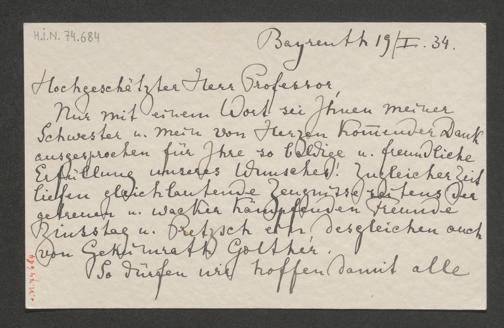 H.I.N. 74.684
Bayreuth 19/I. 34.
Hochgeschätzter Herr Professor,
Nur mit einem Wort sei Ihnen meiner
Schwester u. mein von Herzen kom̅ender Dank
ausgesprochen für Ihre so baldige u. freundliche
Erfüllung unseres Wunsches! Zugleicher Zeit
liefen gleichlautende Zeugnisse seitens der
getreuen u. wacker kämpfenden Freunde
u. Pretzsch ein, desgleichen auch
von Geheimrath Golther.
So dürfen wir hoffen damit alle